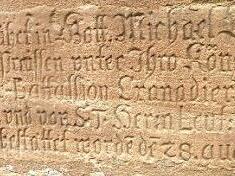 in Gott. Michael
unter Ihro Kön
Battallion Granadier
und von Sr. Herrn Leut
bestattet worde de 28. aug